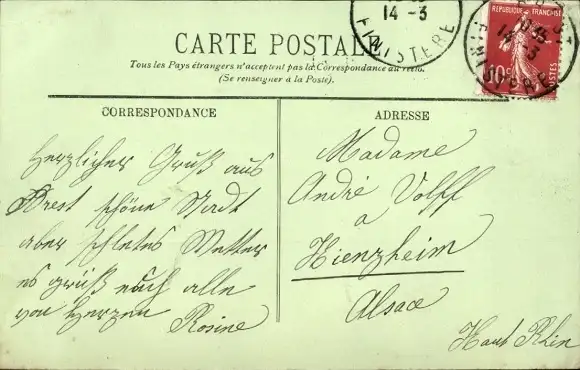 14 - 3
FINISTERE
CARTE POSTALE
Tous les Pays étrangers n'acceptent pas la Correspondance au recto.
(Se renseigner à la Poste).
REPUBLIQUE FRANÇAISE
14 - 3
FINISTERE
10c
POSTES
CORRESPONDANCE
Herzlicher Gruß aus
Brest schöne Stadt
aber schletes Wetter
es grüß euch alle
von Herzen Rosine
ADRESSE
Madame
André Volff
a
Kienzheim
Alsace
Haut Rhin